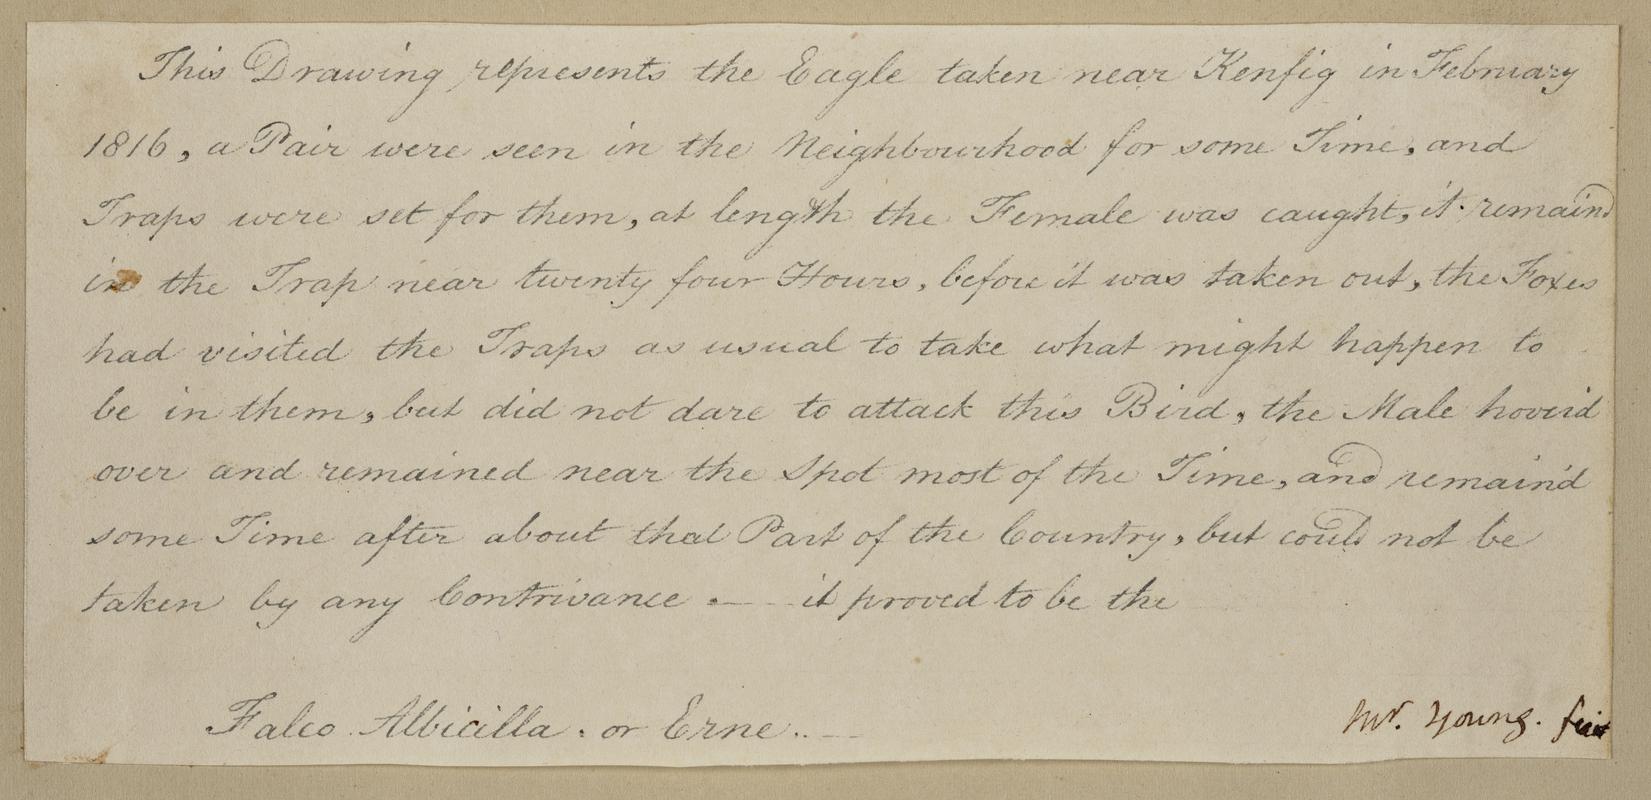 This Drawing represents the Eagle taken near Kenfig in February
1816, a Pair were seen in the Neighbourhood for some Time, and
Traps were set for them, at length the Female was caught, it remaind
in the Trap near twenty four Hours, before it was taken out, the Foxes
had visited the Traps as usual to take what might happen to
be in them, but did not dare to attack this Bird, the Male hover'd
over and remained near the Spot most of the Time, and remain'd
some Time after about that Part of the Country, but could not be
taken by any Contrivance .— it proved to be the
Falco Albicilla . or Erne ..—
Mr. Young. fecit